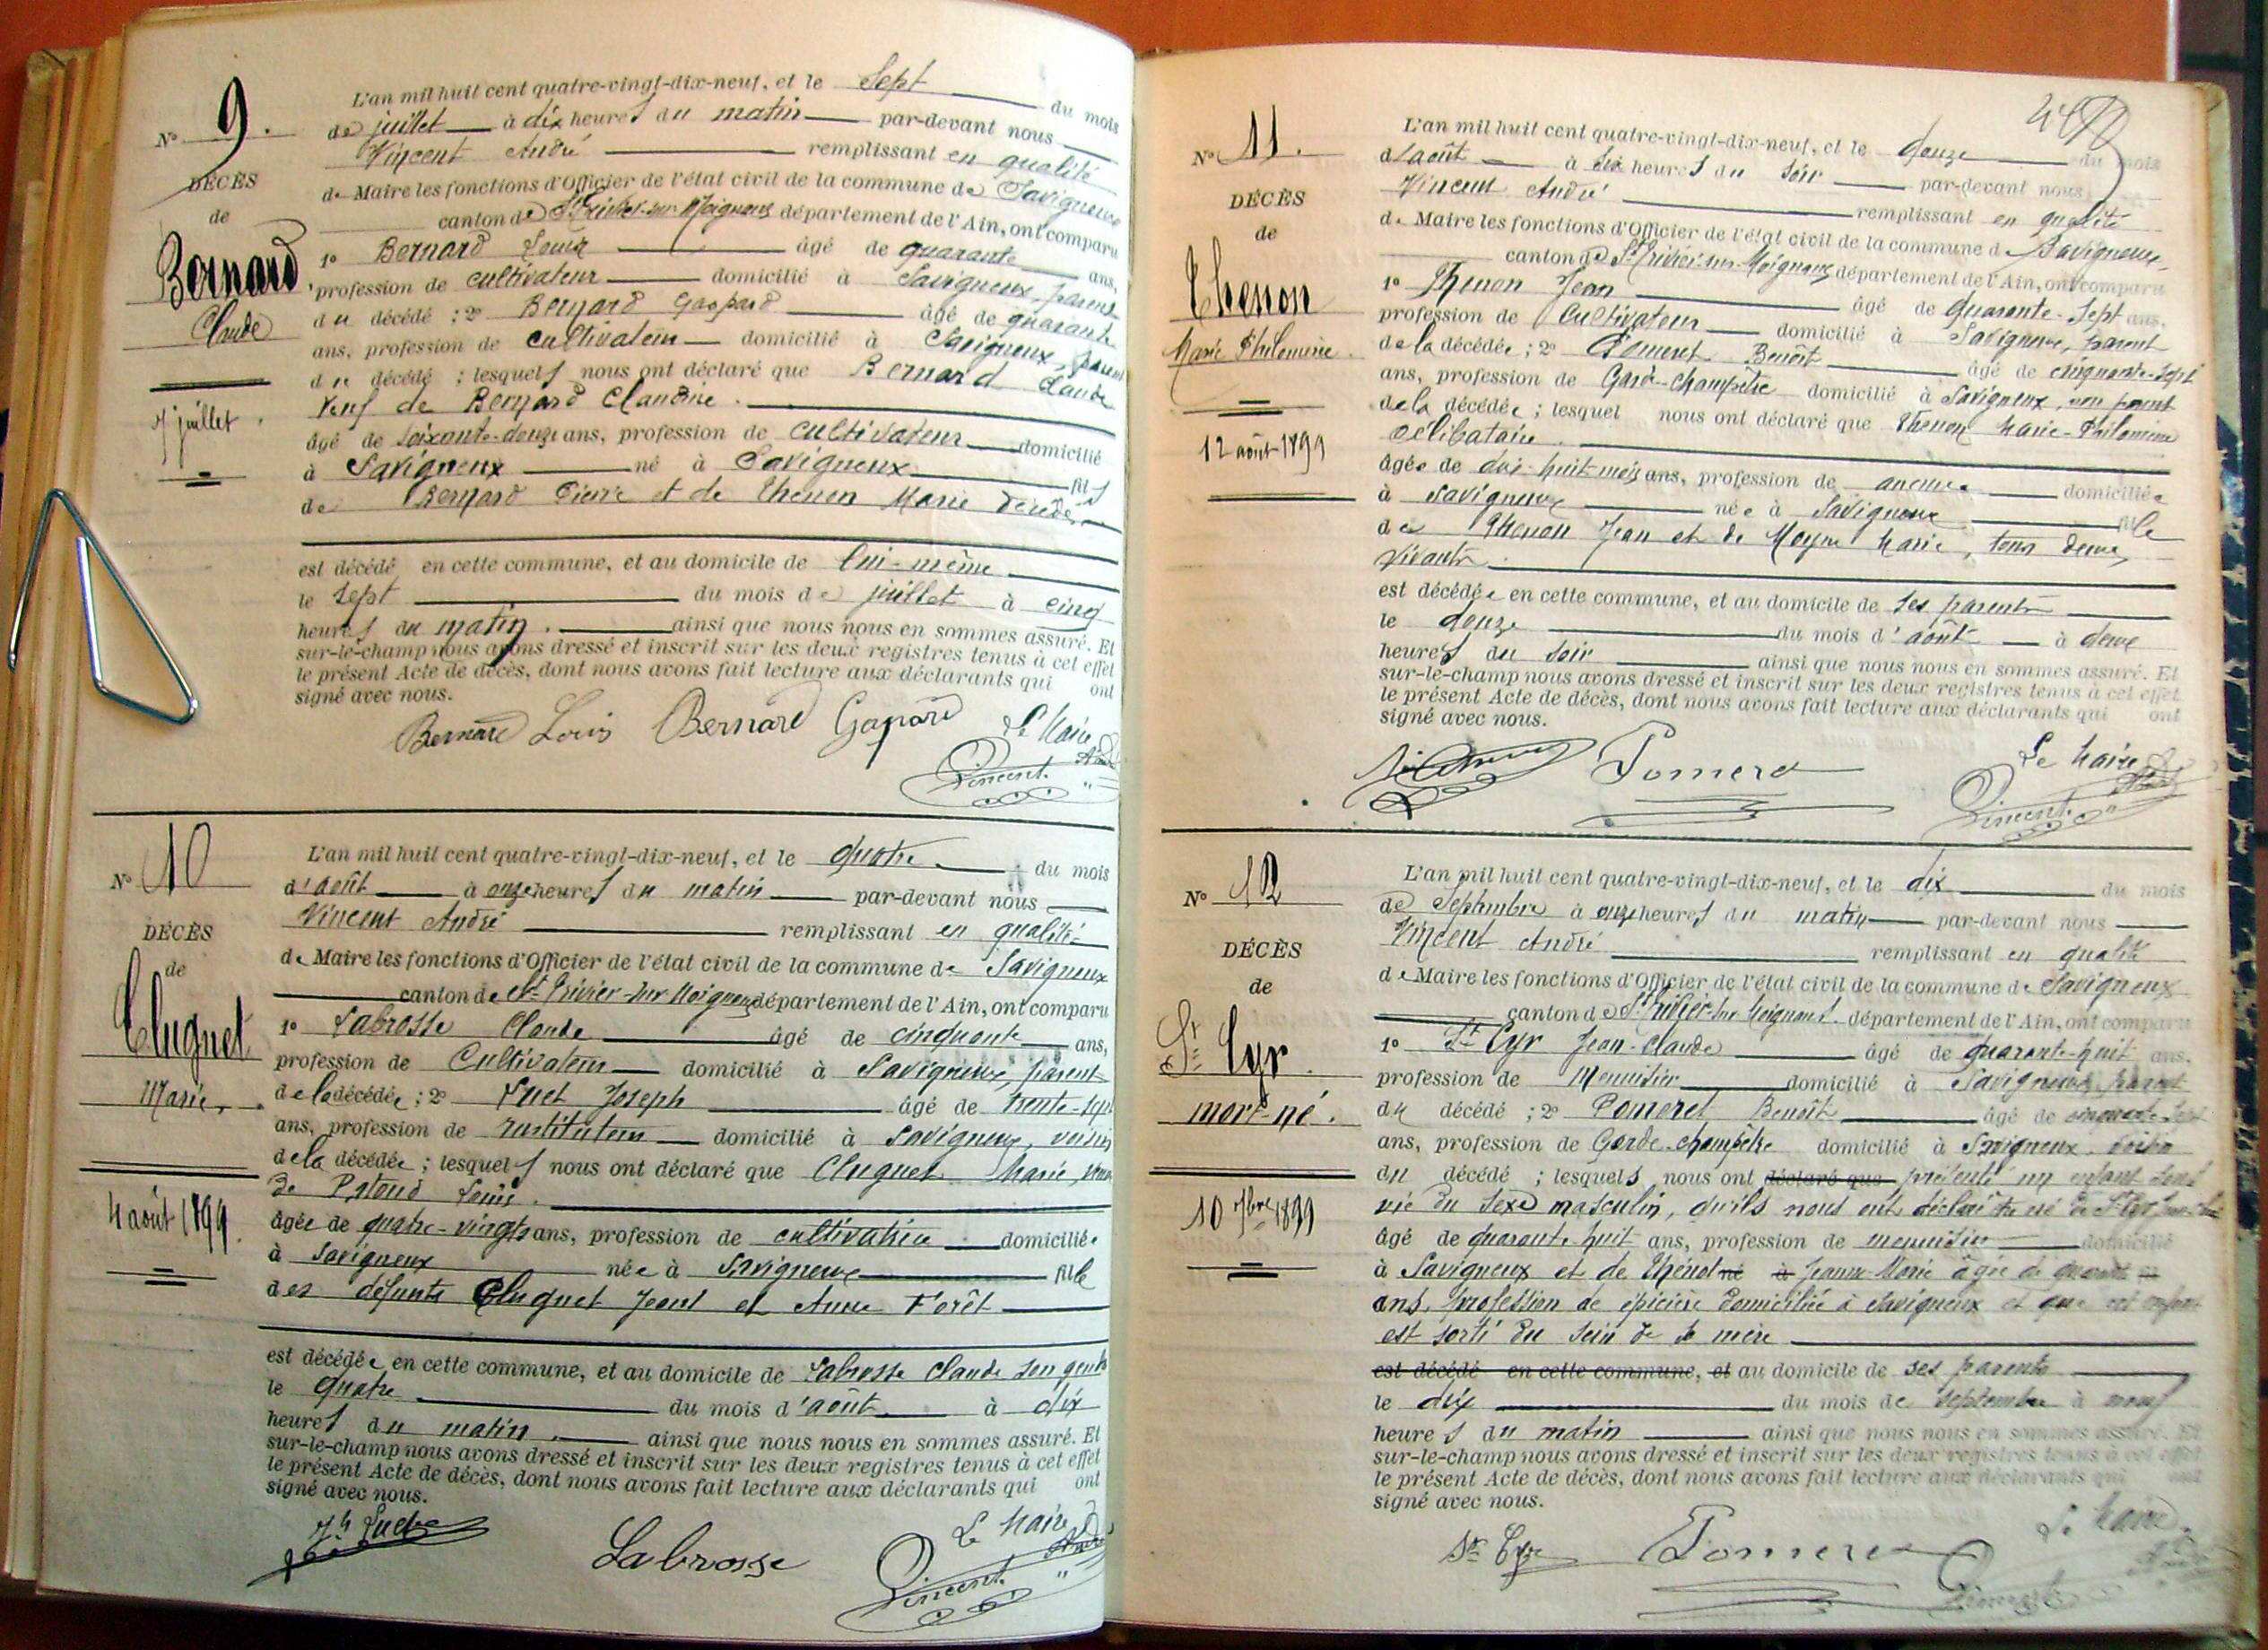 N° 9.
DÉCÈS
de
Bernard
Claude
7 juillet
L'an mil huit cent quatre-vingt-dix-neuf, et le Sept du mois
de juillet à dix heures du matin par-devant nous
Vincent André remplissant en qualité
de Maire les fonctions d'Officier de l'état civil de la commune de Savigneux
canton de St Trivier-sur-Moignans département de l'Ain, ont comparu
1° Bernard Louis âgé de quarante ans,
profession de cultivateur domicilié à Savigneux, parent
du décédé ; 2° Bernard Gaspard âgé de quarante
ans, profession de cultivateur domicilié à Savigneux, parent
du décédé ; lesquels nous ont déclaré que Bernard Claude
veuf de Bernard Claudine.
âgé de soixante-douze ans, profession de cultivateur domicilié
à Savigneux né à Savigneux fils
de Bernard Pierre et de Thenon Marie décédés
est décédé en cette commune, et au domicile de lui-même
le sept du mois de juillet à cinq
heures du matin. ainsi que nous nous en sommes assuré. Et
sur-le-champ nous avons dressé et inscrit sur les deux registres tenus à cet effet
le présent Acte de décès, dont nous avons fait lecture aux déclarants qui ont
signé avec nous.
Bernard Louis Bernard Gaspard Le Maire
Vincent André
N° 10
DÉCÈS
de
Cluguet
Marie,
4 août 1899.
L'an mil huit cent quatre-vingt-dix-neuf, et le quatre du mois
d'août à onze heures du matin par-devant nous
Vincent André remplissant en qualité
de Maire les fonctions d'Officier de l'état civil de la commune de Savigneux
canton de St Trivier-sur-Moignans département de l'Ain, ont comparu
1° Labrosse Claude âgé de cinquante ans,
profession de Cultivateur domicilié à Savigneux, parent
de la décédée ; 2° Luet Joseph âgé de trente-sept
ans, profession de Instituteur domicilié à Savigneux, voisin
de la décédée ; lesquels nous ont déclaré que Cluguet Marie, veuve
de Louis.
âgée de quatre-vingts ans, profession de cultivatrice domiciliée
à Savigneux née à Savigneux fille
des défunts Cluguet Jean et Anne Forêt
est décédée en cette commune, et au domicile de Labrosse Claude son gendre
le quatre du mois d'août à dix
heures du matin. ainsi que nous nous en sommes assuré. Et
sur-le-champ nous avons dressé et inscrit sur les deux registres tenus à cet effet
le présent Acte de décès, dont nous avons fait lecture aux déclarants qui ont
signé avec nous.
Jh Luet Labrosse Le Maire
Vincent André
N° 11.
DÉCÈS
de
Thenon
Marie Philomène.
12 août 1899
L'an mil huit cent quatre-vingt-dix-neuf, et le douze du mois
d'août à six heures du soir par-devant nous
Vincent André remplissant en qualité
de Maire les fonctions d'Officier de l'état civil de la commune de Savigneux,
canton de St Trivier-sur-Moignans département de l'Ain, ont comparu
1° Thenon Jean âgé de quarante-sept ans,
profession de Cultivateur domicilié à Savigneux, parent
de la décédée ; 2° Pomeret Benoît âgé de cinquante-sept
ans, profession de Garde-champêtre domicilié à Savigneux, non parent
de la décédée ; lesquel nous ont déclaré que Thenon Marie-Philomène
célibataire.
âgée de dix-huit mois ans, profession de aucune domiciliée
à Savigneux née à Savigneux fille
de Thenon Jean et de Moyne Marie, tous deux
vivants.
est décédée en cette commune, et au domicile de ses parents
le douze du mois d'août à deux
heures du soir ainsi que nous nous en sommes assuré. Et
sur-le-champ nous avons dressé et inscrit sur les deux registres tenus à cet effet
le présent Acte de décès, dont nous avons fait lecture aux déclarants qui ont
signé avec nous.
Pomeret Le Maire
Vincent André
N° 12
DÉCÈS
de
St Cyr.
mort-né.
10 7bre 1899
L'an mil huit cent quatre-vingt-dix-neuf, et le dix du mois
de Septembre à onze heures du matin par-devant nous
Vincent André remplissant en qualité
de Maire les fonctions d'Officier de l'état civil de la commune de Savigneux
canton de St Trivier-sur-Moignans. département de l'Ain, ont comparu
1° St Cyr Jean-Claude âgé de quarante-huit ans,
profession de Menuisier domicilié à Savigneux, parent
du décédé ; 2° Pomeret Benoît âgé de cinquante-sept
ans, profession de Garde-champêtre domicilié à Savigneux. voisin
du décédé ; lesquels nous ont déclaré que présenté un enfant sans
vie du sexe masculin, qu'ils nous ont déclaré être né de St Cyr Jean-Claude
âgé de quarante-huit ans, profession de menuisier domicilié
à Savigneux et de Thénot né à Jeanne-Marie âgée de quarante
ans, profession de épicière domiciliée à Savigneux et que cet enfant
est sorti du sein de sa mère
est décédé en cette commune, et au domicile de ses parents
le dix du mois de septembre à neuf
heures du matin ainsi que nous nous en sommes assuré. Et
sur-le-champ nous avons dressé et inscrit sur les deux registres tenus à cet effet
le présent Acte de décès, dont nous avons fait lecture aux déclarants qui ont
signé avec nous.
St Cyr Pomeret Le Maire
Vincent André